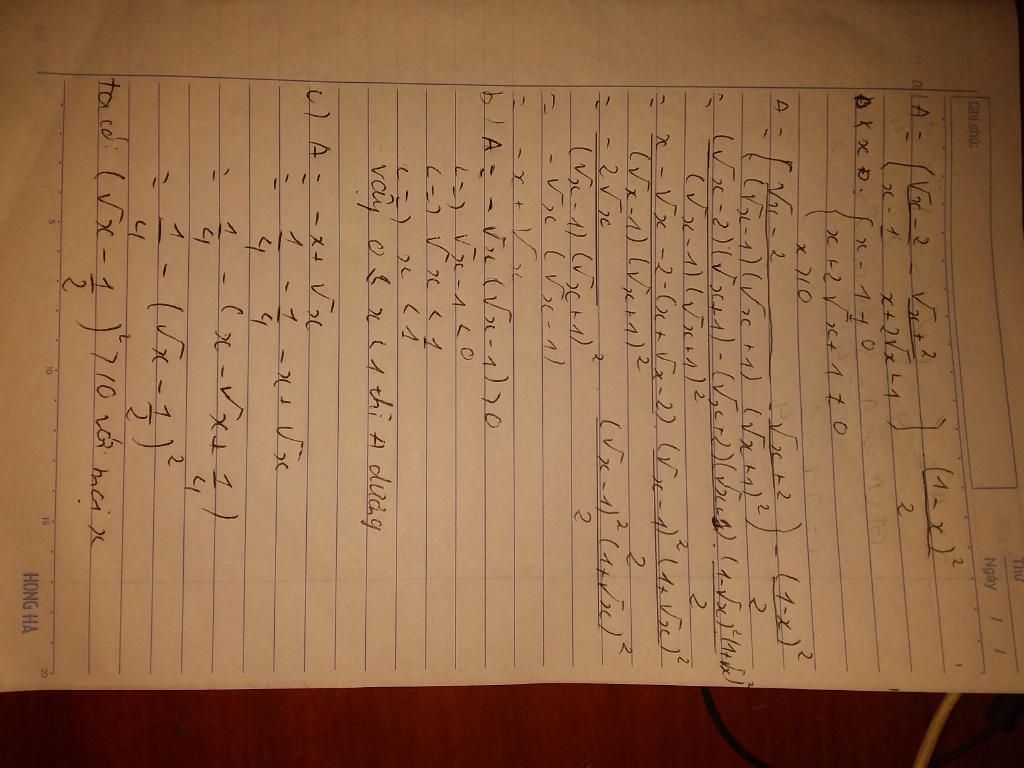 Ghi chú:
Thứ
Ngày / /
a) A = ( √x-2 / x-1 - √x+2 / x+2√x+1 ) (1-x)² / 2
ĐKXĐ: { x-1 ≠ 0
{ x+2√x+1 ≠ 0
x ≥ 0
A = ( √x-2 / (√x-1)(√x+1) - √x+2 / (√x+1)² ) - (1-x)² / 2
= (√x-2)(√x+1) - (√x+2)(√x-1) / (√x-1)(√x+1)² . (1-√x)²(1+√x)² / 2
= x-√x-2-(x+√x-2) / (√x-1)(√x+1)² (√x-1)²(1+√x)² / 2
= -2√x / (√x-1)(√x+1)² (√x-1)²(1+√x)² / 2
= -√x (√x-1)
= -x + √x
b) A = -√x (√x-1) > 0
(=) √x-1 < 0
(=) √x < 1
(=) x < 1
Vậy 0 ≤ x < 1 thì A dương
c) A = -x + √x
= 1/4 - 1/4 - x + √x
= 1/4 - (x - √x + 1/4)
= 1/4 - (√x - 1/2)²
ta có: (√x - 1/2)² ≥ 0 với mọi x
5 10 15 20
HONG HA